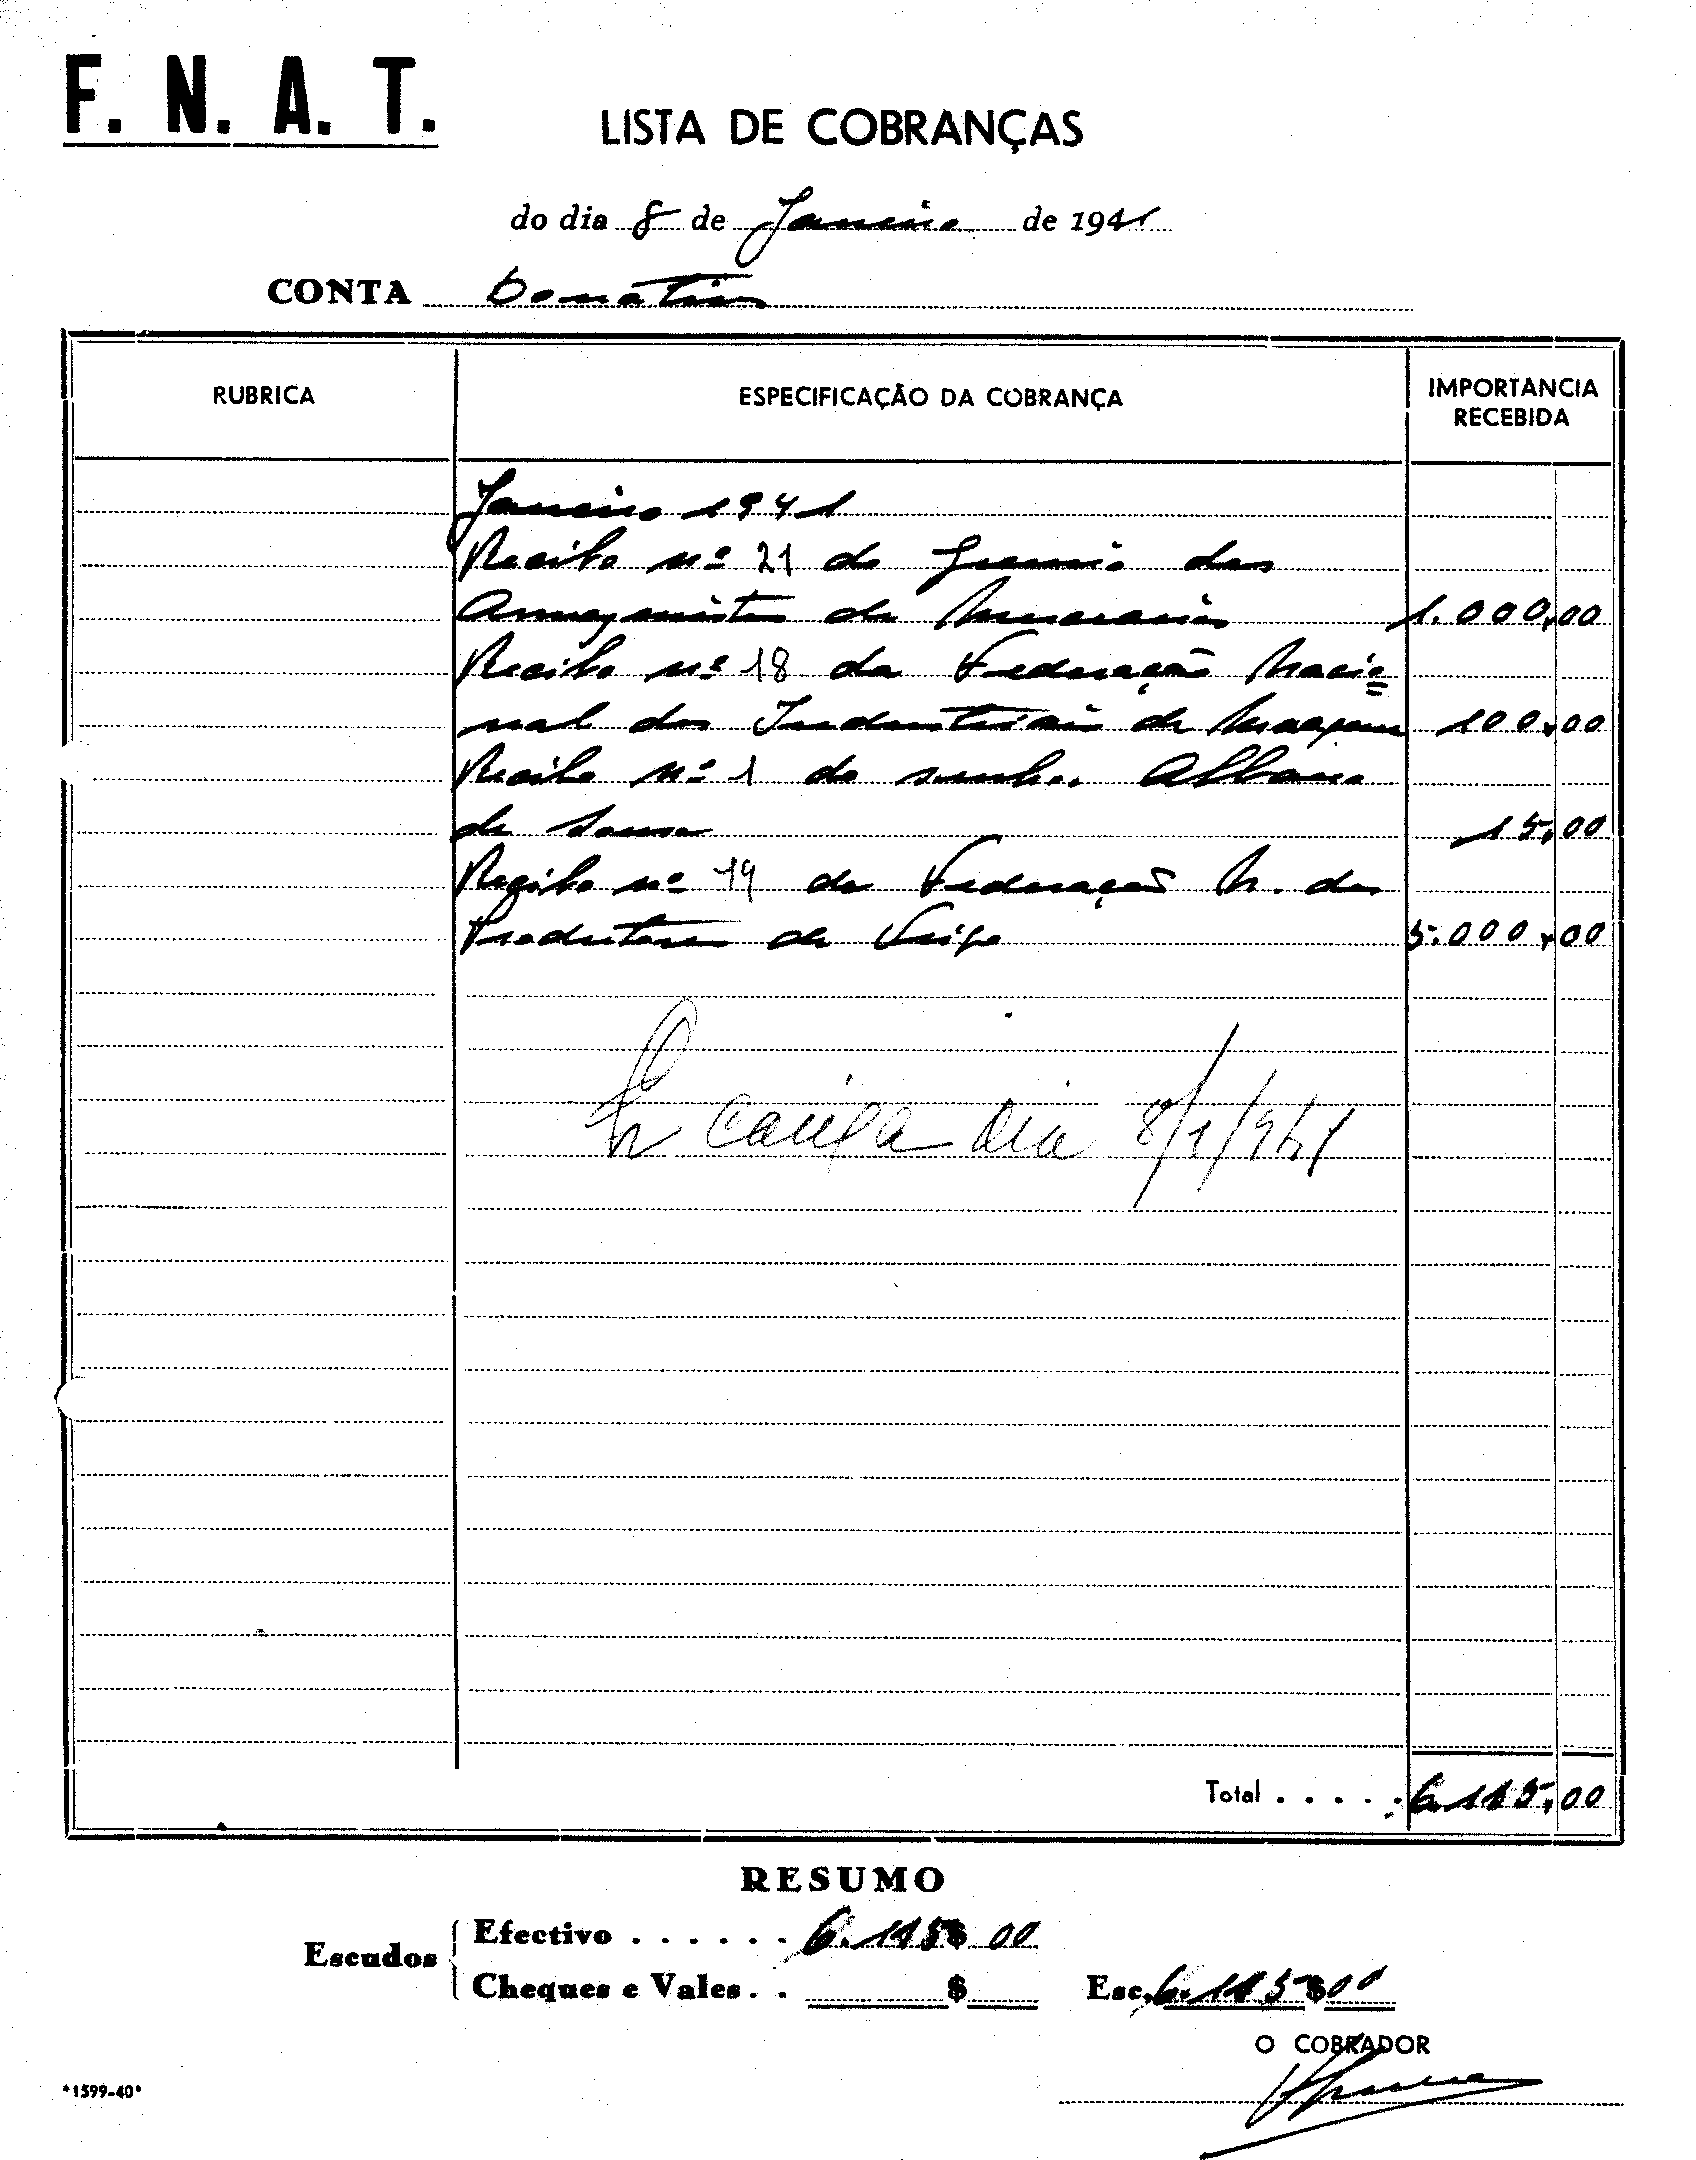 F. N. A. T.
LISTA DE COBRANÇAS
do dia 8 de Janeiro de 1941
CONTA Donativos
RUBRICA ESPECIFICAÇÃO DA COBRANÇA IMPORTANCIA RECEBIDA
Janeiro 1941
Recibo nº 21 do Gremio dos
Armazenistas de Mercearias 1.000,00
Recibo nº 18 da Federação Nacio
nal dos Industriais de Moagem 100,00
Recibo nº 1 do senhor Albano
de Sousa 15,00
Recibo nº 19 da Federação N. dos
Produtores de Trigo 5.000,00
caixa dia 8/1/941
Total . . . . . 6.115,00
RESUMO
Escudos
Efectivo . . . . . . 6.115$00
Cheques e Vales . . $ Esc. 6.115$00
O COBRADOR
*1599-40*